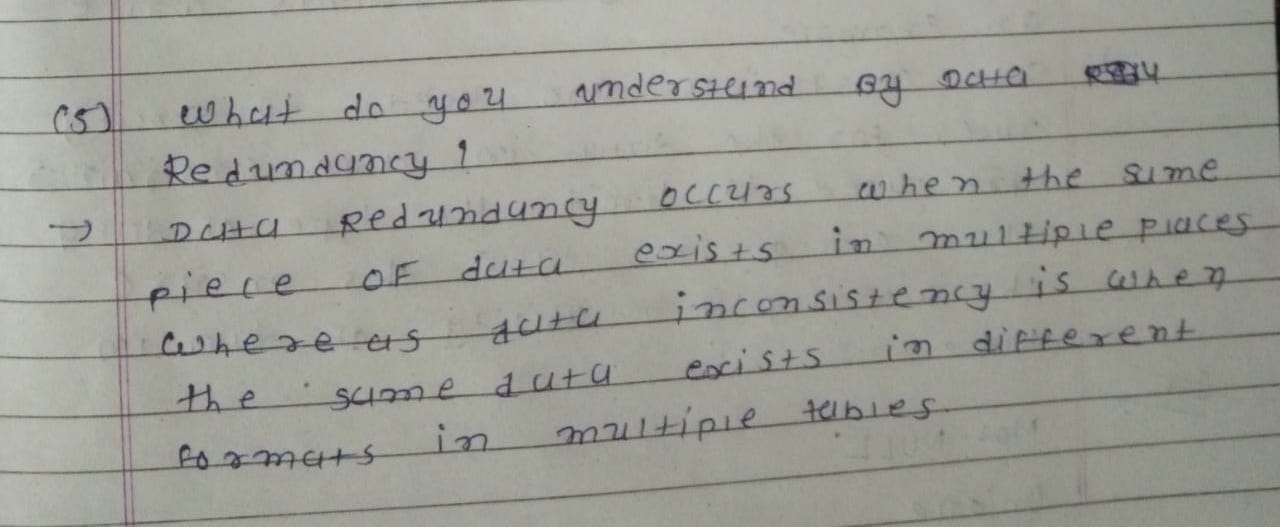 (5) What do you understand By Data
Redundancy ?
→ Data Redundancy occurs when the same
piece OF data exists in multiple places
where as data inconsistency is when
the same data exists in different
formats in multiple tables.